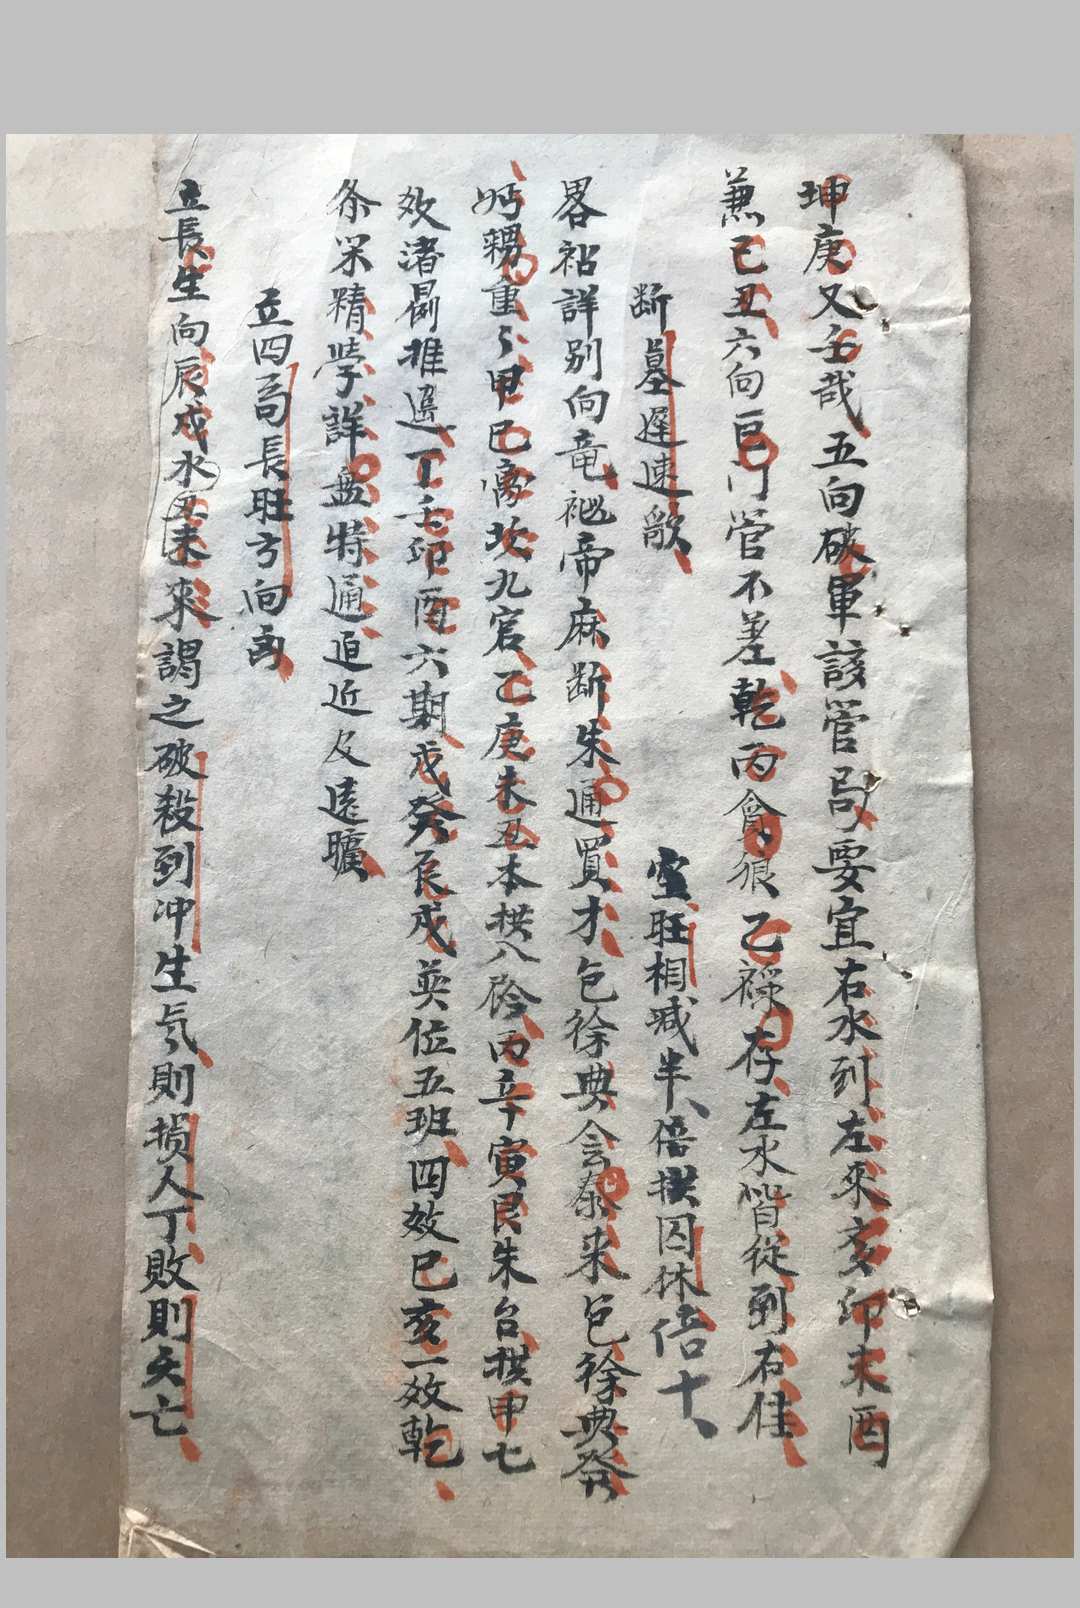 坤庚又壬哉五向破軍該管局要宜右水到左來亥卯未酉
兼己丑六向巨门管不差乾丙貪狼乙祿存左水皆從到右佳
断墓遲速歌 旺相减半倍拱囚休倍十
畧詳别向竜帝麻断朱通買才包徐典会泰来包徐典發
重甲巳九宮乙庚未丑本拱八丙辛寅艮朱台拱申七
效渚推邊丁壬卯酉六期戊癸辰戌英位五班四效巳亥一效乾
条采精學詳盘特通近及遠曠
立四局長旺方向
立長生向辰戌水丑未來謁之破殺到冲生気則損人丁敗則夭亡